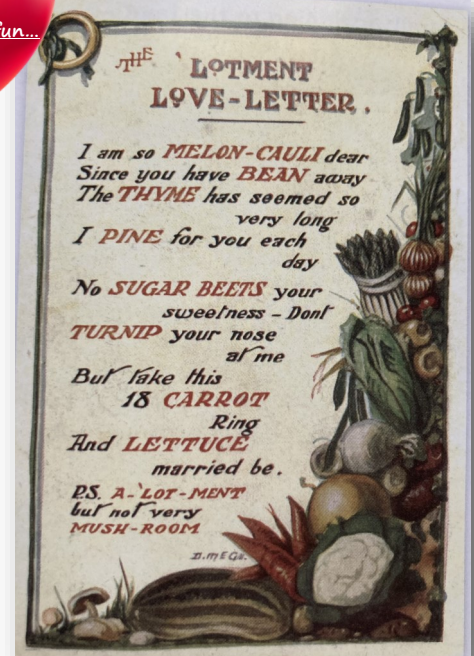 fun...
THE 'LOTMENT
LOVE-LETTER.
I am so MELON-CAULI dear
Since you have BEAN away
The THYME has seemed so
very long
I PINE for you each
day
No SUGAR BEETS your
sweetness - Dont
TURNIP your nose
at me
But take this
18 CARROT
Ring
And LETTUCE
married be.
P.S. A-'LOT-MENT
but not very
MUSH-ROOM